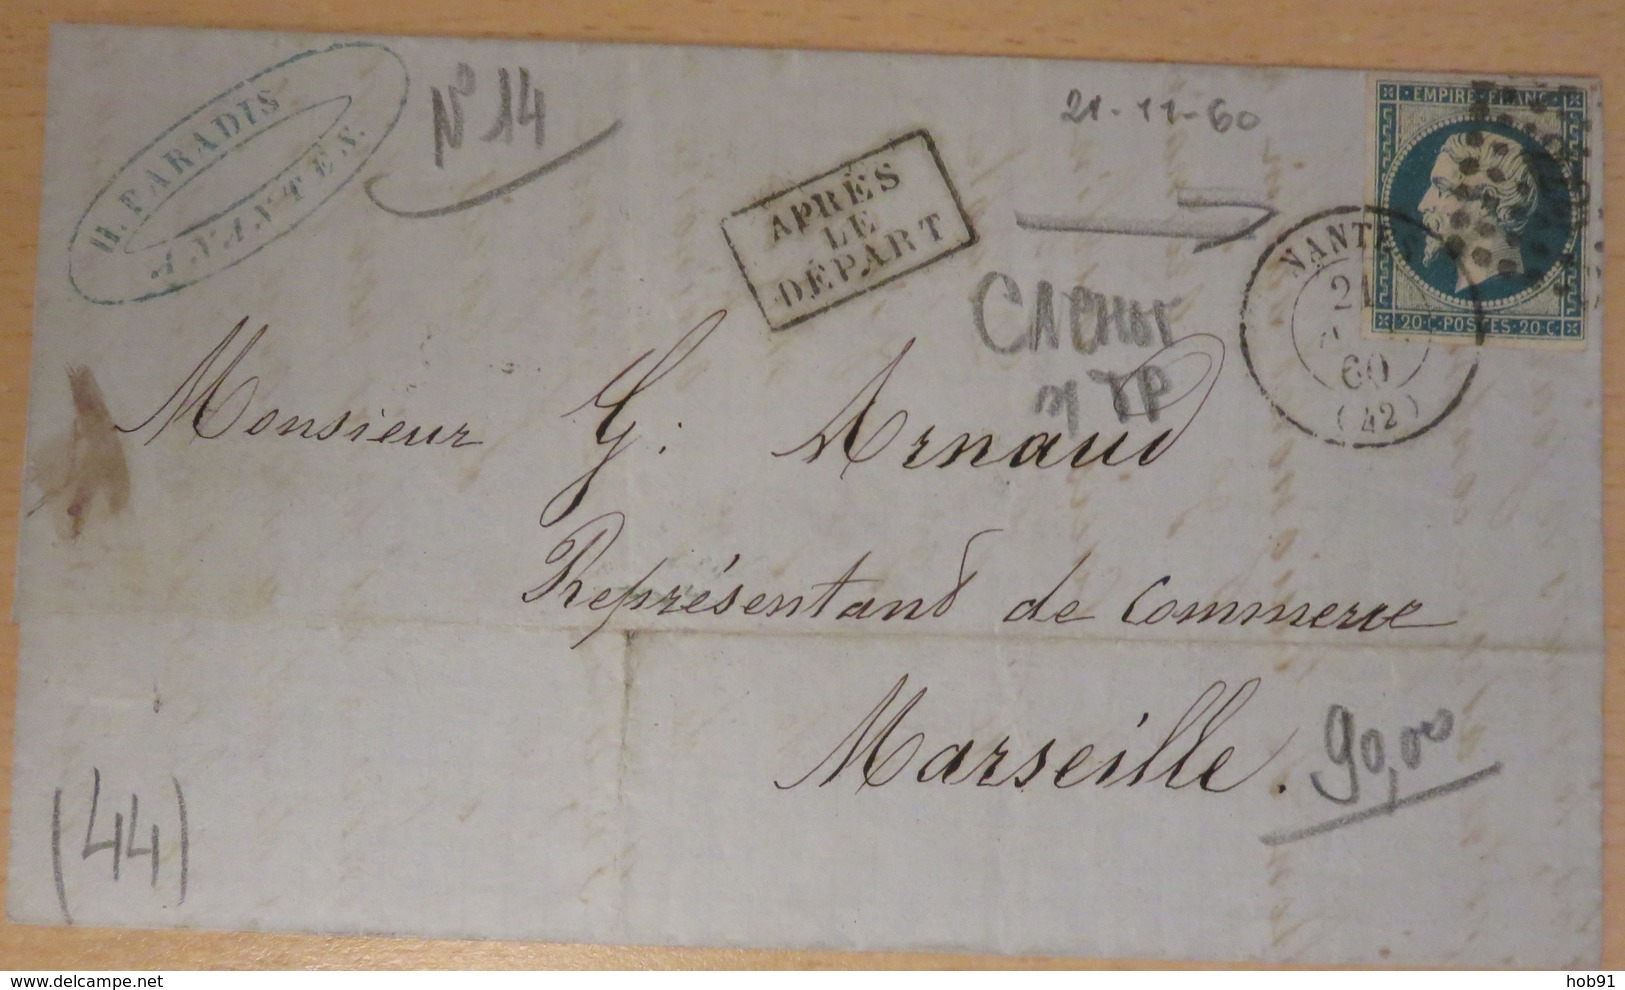 H. PARADIS
NANTES.
N° 14
21-11-60
EMPIRE · FRANC
20 C · POSTES · 20 C
APRÈS
LE
DÉPART
NANTES
21
60
(42)
CACHET
s/ TP
Monsieur G. Arnaud
Représentand de Commerce
Marseille.
90,00
(44)
delcampe.net
hob91